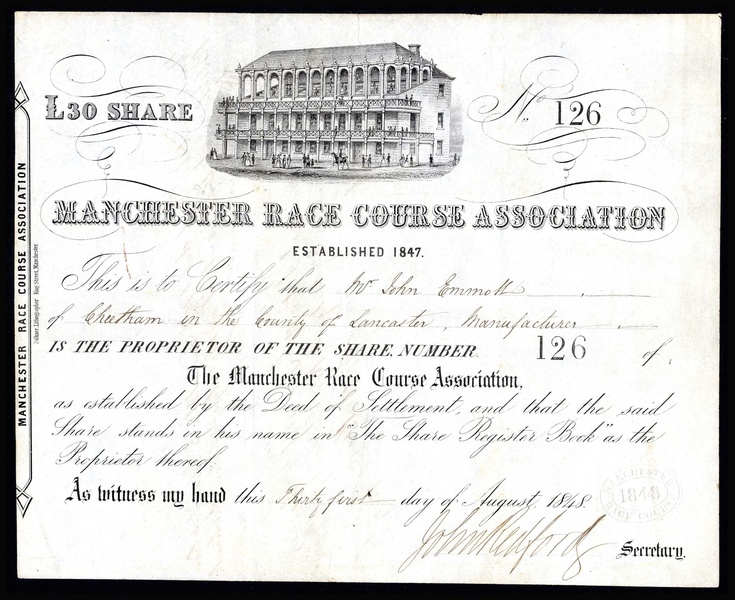 £30 SHARE
No. 126
MANCHESTER RACE COURSE ASSOCIATION
ESTABLISHED 1847.
This is to Certify that Mr John Emmott
of Cheetham in the County of Lancaster, Manufacturer
IS THE PROPRIETOR OF THE SHARE, NUMBER 126 of
The Manchester Race Course Association,
as established by the Deed of Settlement, and that the said
Share stands in his name in "The Share Register Book" as the
Proprietor thereof.
As witness my hand this Thirty first day of August, 1848.
John Redford
Secretary.
MANCHESTER RACE COURSE ASSOCIATION
Lithographer King Street, Manchester.
MANCHESTER
1848
RACE COURSE